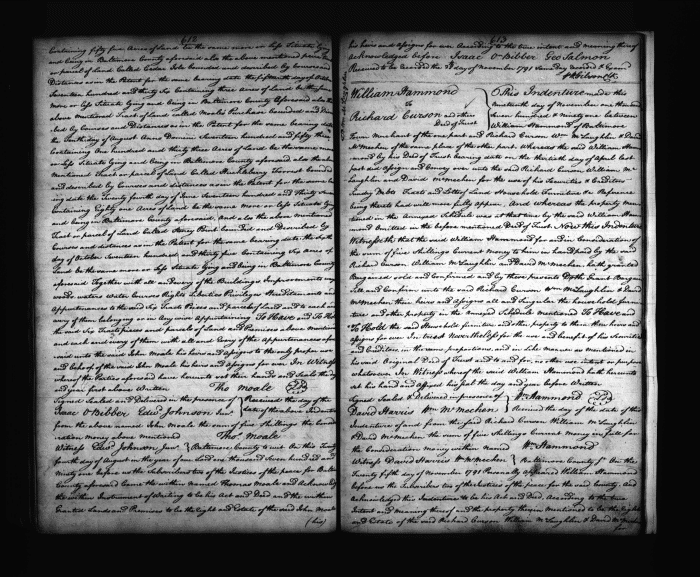 612
Containing fifty five Acres of Land be the same more or less Situate lying
and being in Baltimore County aforesaid also the above mentioned
or parcel of Land Called bounded and described by Courses and
Distances as in the Patent for the same bearing date the fifteenth day of
Seventeen hundred and thirty Six Containing three Acres of Land be the same
more or less Situate lying and being in Baltimore County Aforesaid also the
above mentioned Tract of Land called Moales Purchase bounded and
by Courses and Distances as in the Patent for the same bearing date
the tenth day of August Anno Domini Seventeen hundred and fifty
Containing One hundred and thirty three Acres of Land be the same
or less Situate lying and being in Baltimore County aforesaid also the
mentioned Tract or parcel of Land Called Huckleberry Forrest bounded
and described by Courses and distances as in the Patent for the same
date the Twenty fourth day of June Seventeen hundred and Thirty
Containing Eighty Acres of Land be the same more or less Situate lying
and being in Baltimore County aforesaid, And also the above mentioned
Tract or parcel of Land Called Stoney Point bounded and Described by
Courses and distances as in the Patent for the same bearing date the
day of October Seventeen hundred and thirty five Containing Six Acres of
Land be the same more or less Situate lying and being in Baltimore County
aforesaid Together with all and every of the Buildings Improvements
woods waters Water Courses Rights Liberties Privileges and
Appurtenances to the said Six Tracts Pieces and parcels of Land and to each and
every of them belonging or in Any wise appertaining To Have and To Hold
the said Six Tracts pieces and parcels of Land and Premises above mentioned
and each and every of them with all and Every of the Appurtenances
said unto the said John Moale his heirs and Assigns to the only proper use
and behoof of the said John Moale his heirs and Assigns for ever In Witness
whereof the Parties aforesaid have hereunto set their hands and Seals the day
and year first above Written Tho Moale
Signed Sealed and Delivered in the presence of Received the day of the
Isaac Vn Bibber Edwd Johnson Junr date of the above Indenture
from the above named John Moale the sum of five Shillings the Consideration
money above mentioned Tho. Moale
Witness Edwd Johnson Junr Baltimore County to wit On this
fourth day of August in the year of our Lord one thousand Seven hundred and
Ninety one before us the Subscribers two of the Justices of the peace for Baltimore
County aforesaid Came the within named Thomas Moale and Acknowledged
the within Instrument of Writing to be his Act and Deed and the within
Granted Land and Premises to be the Right and Estate of the said John Moale
(his)
613
his heirs and Assigns for ever According to the true intent and meaning thereof
Acknowledged before Isaac Vn Bibber Geo Salmon
Received to be recorded the day of November 1791 Same day recorded & Examd
Wm Gibson Clk
William Hammond
to
Richard Curson and others
Deed of Trust
This Indenture made this
nineteenth day of November one thousand
Seven hundred & Ninety one between
William Hammond of Baltimore
Town Merchant of the one part and Richard Curson Wm McLaughlin & David
McMechen of the same place of the other part. whereas the said William Hammond
by his Deed of Trust bearing date on the thirtieth day of April last
past did Assign and Convey over unto the said Richard Curson, William McLaughlin
and David McMechen for the uses of his Securities & Creditors
Sundry Debts and Estates of Land Household Furniture &c Reference
being thereto had will more fully appear. And whereas the property mentioned
in the Annexed Schedule was at that time by the said William Hammond
Omitted in the before mentioned Deed of Trust Now this Indenture
Witnesseth that the said William Hammond for and in Consideration of
the sum of five Shillings Current money to him in hand paid by the said
Richard Curson, William McLaughlin & David McMechen hath granted
Bargained sold and Confirmed and by these presents Doth Grant Bargain
Sell and Confirm unto the said Richard Curson Wm McLaughlin & David
McMechen their heirs and Assigns all and Singular the household furniture
and the other property in the annexed Schedule mentioned To Have and
To Hold the said Household furniture and other property to them their heirs and
Assigns for ever In trust Nevertheless for the use and benefit of his Securities
and Creditors, in the same proportions and in like manner as mentioned in
his said Original Deed of Trust and to and for no other intent or purpose
whatsoever In Witness whereof the said William Hammond hath hereunto
set his hand and affixed his seal the day and year before Written
Signed Sealed & Delivered in presence of Wm Hammond
David Harris Wm McMechen Received the day of the date of this
Indenture of and from the said Richard Curson William McLaughlin
& David McMechen the sum of five Shillings Current Money in full for
the Consideration Money within named Wm Hammond
Witness David Harris Wm McMechen Baltimore County St. On the
Twenty fifth day of November 1791 Personally appeared William Hammond
before us the Subscribers two of the Justices of the peace for the said County. And
acknowledged this Indenture to be his Act and Deed, According to the true
Intent and Meaning thereof and the property therein Mentioned to be the Right
and Estate of the said Richard Curson William McLaughlin & David McMechen